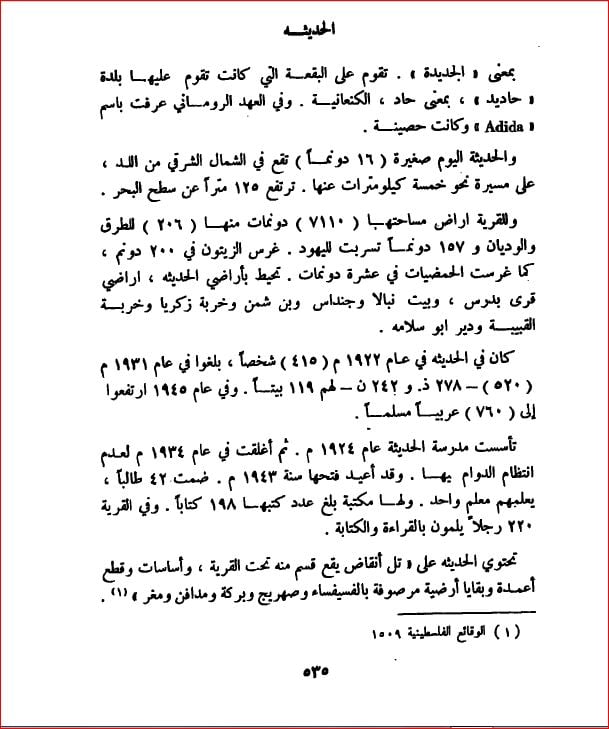 الحديثـــه
بمعنى « الجديدة » . تقوم على البقعـــة التي كانت تقوم عليهــا بلدة
« حاديد » ، بمعنى حاد ، الكنعانيـة . وفي العهد الرومــاني عرفت باسم
« Adida » وكانت حصينـــة .
والحديثة اليوم صغيرة ( ١٦ دونمــاً ) تقع في الشمال الشرقي من اللــد ،
على مسيرة نحو خمسة كيلومترات عنها . ترتفع ١٢٥ متراً عن سطح البحر .
وللقرية اراض مساحتهــا ( ٧١١٠ ) دونمات منهــا ( ٢٠٦ ) للطرق
والوديان و ١٥٧ دونمــاً تسربت لليهود . غرس الزيتون في ٢٠٠ دونم ،
كما غرست الحمضيات في عشرة دونمات . تحيط بأراضي الحديثه ، اراضي
قرى بدرس ، وبيت نبالا وجنداس وبن شمن وخربة زكريا وخربــة
القبيبــة ودير ابو سلامه .
كان في الحديثه في عــام ١٩٢٢ م ( ٤١٥ ) شخصــاً ، بلغوا في عام ١٩٣١ م
( ٥٢٠ ) – ٢٧٨ ذ. و ٢٤٢ ن – لهم ١١٩ بيتــاً . وفي عام ١٩٤٥ ارتفعوا
إلى ( ٧٦٠ ) عربيــاً مسلمــاً .
تأسست مدرسة الحديثة عام ١٩٢٤ م . ثم أغلقت في عام ١٩٣٤ م لعــدم
انتظام الدوام بهــا . وقد أعيـد فتحهــا سنة ١٩٤٣ م . ضمت ٤٢ طالبــاً ،
يعلمهم معلم واحد . ولهــا مكتبة بلغ عدد كتبهــا ١٩٨ كتاباً . وفي القرية
٢٢٠ رجلاً يلمون بالقراءة والكتابة .
تحتوي الحديثه على « تل أنقاض يقع قسم منه تحت القرية ، وأساسات وقطع
أعمدة وبقايا أرضية مرصوفة بالفسيفساء وصهريج وبركة ومدافن ومغر » (١) .
( ١ ) الوقائع الفلسطينية ١٥٠٩
٥٣٥